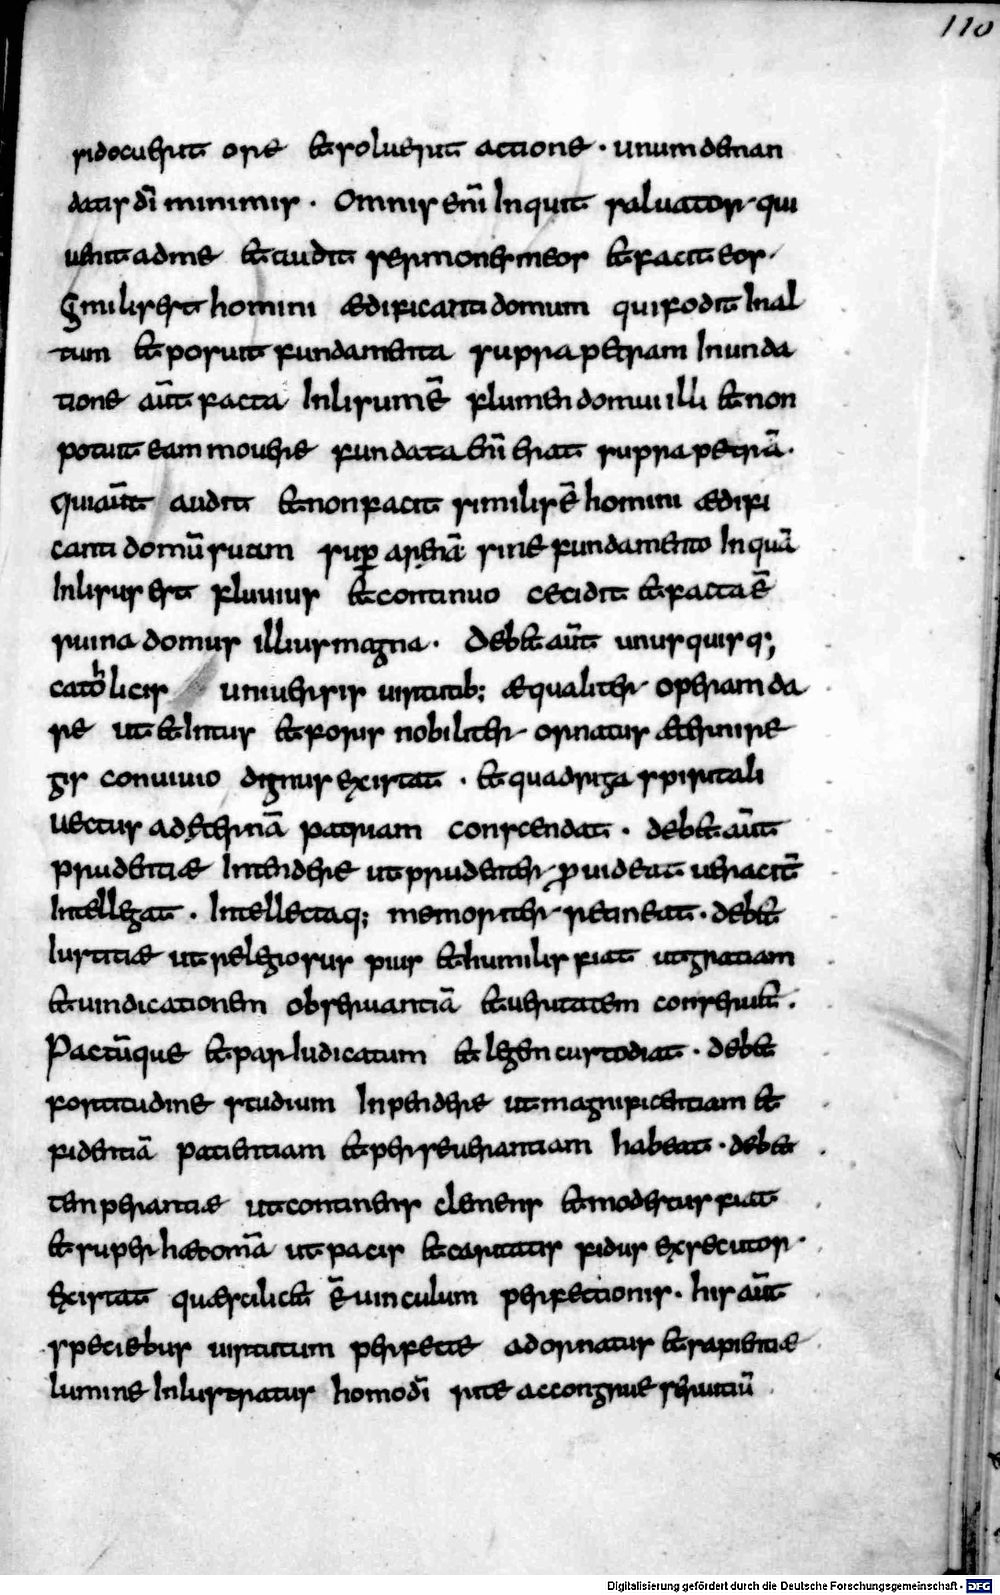 110
si docuerit ore et soluerit actione · unum de man
datis dī minimis · Omnis enī Inquit saluator qui
uenit ad me et audit sermones meos et facit eos ·
Similis est homini ædificanti domum qui fodit In al
tum et posuit fundamenta supra petram Inunda
tione aūt facta Inlisum ē flumen domui illi et non
potuit eam mouere fundata enī erat supra petrā ·
Qui aūt audit et non facit similis ē homini ædifi
canti domū suam sup arenā sine fundamento In quā
Inlisus est fluuius et continuo cecidit et facta ē
ruina domus illius magna · Debet aūt unus quis q;
catholicis uniuersis uirtutib; æqualiter operam da
re ut et Intus et foris nobiliter ornatus æterni re
gis conuiuio dignus existat · et quadriga spiritali
uectus ad eternā patriam conscendat · debet aūt
prudentiæ Intendere ut prudenter prouideat ueracit̄
Intellegat · Intellectaq; memoriter retineat · debet
Iustitiæ ut relegiosus pius et humilis fiat ut gratiam
et uindicationem obseruantiā et ueritatem conseruet ·
Pactūque et par Iudicatum et legem custodiat · debet
fortitudine studium Inpendere ut magnificentiam et
fidentiā patientiam et perseuerantiam habeat · debet
temperantiæ ut continens clemens et modestus fiat
et super hæc omā ut pacis et caritatis fidus exsecutor
existat quæ scilicet ē uinculum perfectionis · his aūt
speciebus uirtutum perfecte adornatus et sapientiæ
lumine Inlustratus homo dī rite ac congrue seruitiū
Digitalisierung gefördert durch die Deutsche Forschungsgemeinschaft - DFG